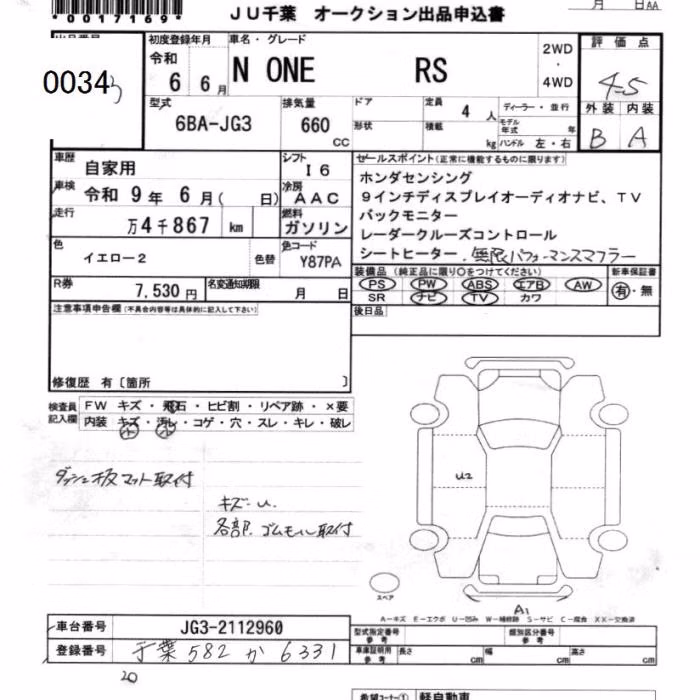 *00017169*
JU千葉 オークション出品申込書
月 日AA
0034
初度登録年月
令和
6 6月
車名・グレード
N ONE RS
2WD
・
4WD
評価点
4-5
外装 内装
B A
型式
6BA-JG3
排気量
660 CC
ドア
形状
定員 4 人
積載 kg
ディーラー・並行
モデル年式 年
ハンドル 左・右
車歴
自家用
シフト
I6
車検 令和 9年 6月( 日)
冷房
AAC
走行 万4千867 km
燃料
ガソリン
色
イエロー2
色替
色コード
Y87PA
R券
7,530円
名変通知期限
月 日
セールスポイント(正常に機能するものに限ります)
ホンダセンシング
9インチディスプレイオーディオナビ、TV
バックモニター
レーダークルーズコントロール
シートヒーター.無限パフォーマンスマフラー
装備品(純正品に限り○をつけてください)
PS PW ABS エアB AW
SR ナビ TV カワ
新車保証書
有・無
後日品
注意事項申告欄(不具合内容等は具体的に記入して下さい)
修復歴 有〔箇所 〕
検査員記入欄
FW キズ・飛石・ヒビ割・リペア跡・×要
内装 キズ・汚レ・コゲ・穴・スレ・キレ・破レ
小 小
ダッシュ板マット取付
キズ-U.
各部.ゴムモール取付
U2
スペア
A1
A-キズ E-エクボ U-凹み W-補修跡 S-サビ C-腐食 XX-交換済
車台番号 JG3-2112960
登録番号 千葉 582 か 6331
20
型式指定番号
参考
類別区分番号
参考
車庫証明用
参考
長さ cm 幅 cm 高さ cm
希望コーナー① 軽自動車